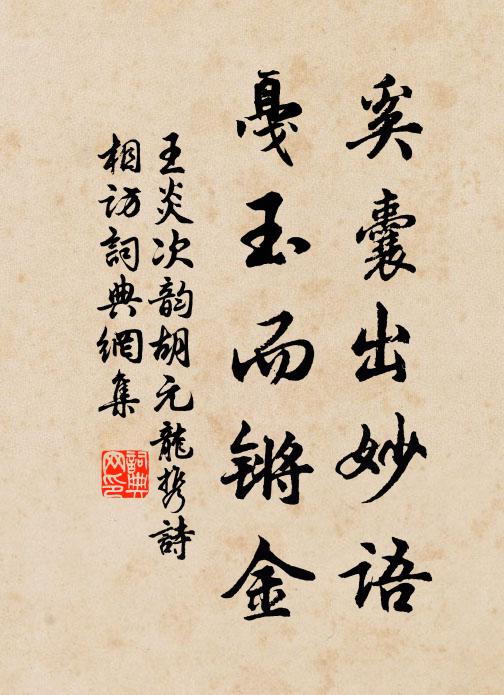 奚囊出妙语
戛玉而锵金
王炎次韵胡元龍携詩
相访詞典網集
詞典
网印